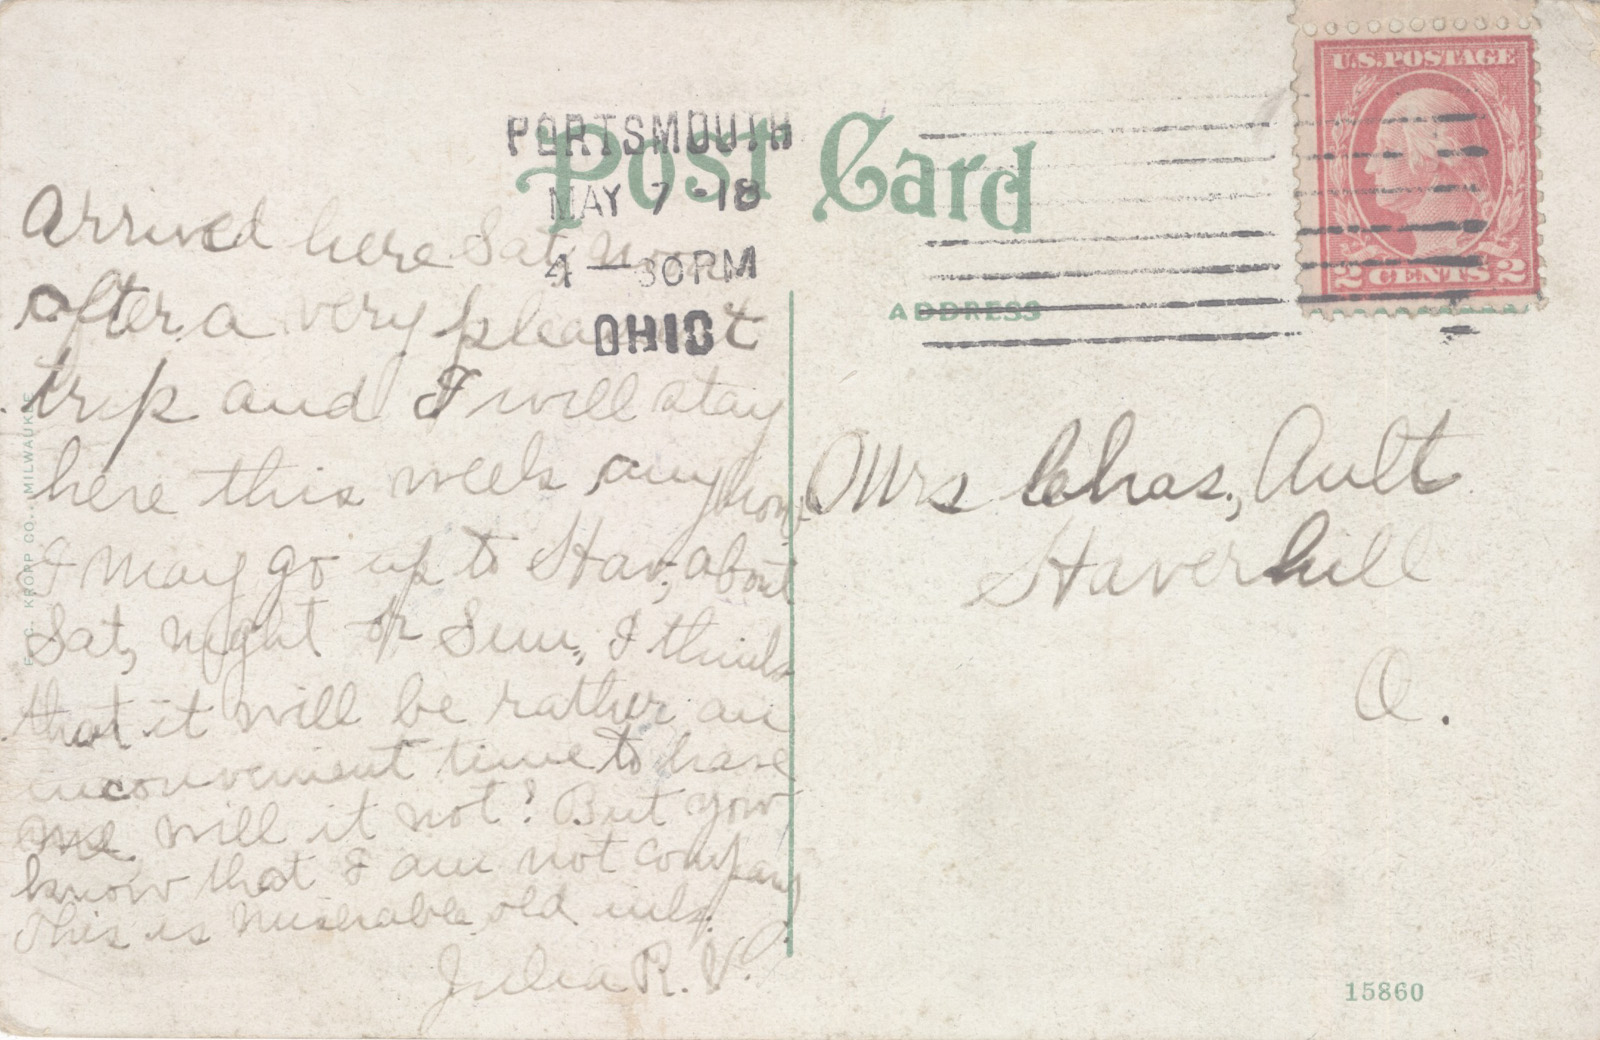 U.S. POSTAGE
2 CENTS 2
Post Card
PORTSMOUTH
MAY 7 - 18
4 — 30 PM
OHIO
ADDRESS
Arrived here Sat,
after a very pleasant
trip and I will stay
here this week anyhow,
I may go up to Hav, about
Sat, night or Sun, I think
that it will be rather an
inconvenient time to have
me will it not? But you
know that I am not company
This is miserable old ink.
Julia R. V.
Mrs Chas, Ault
Haverhill
O.
E. C. KROPP CO. MILWAUKEE
15860